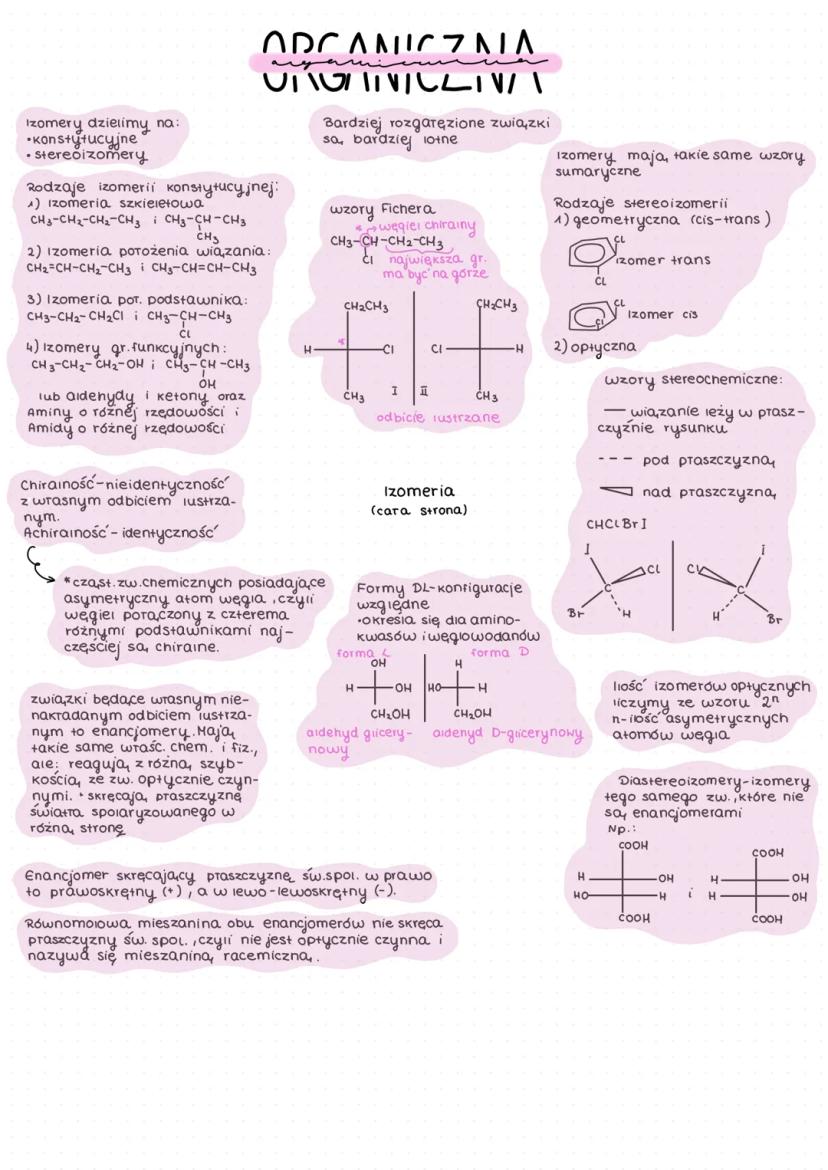 ORGANICZNA
organiczna
Izomery dzielimy na:
•konstytucyjne
• stereoizomery
Rodzaje izomerii konstytucyjnej:
1) Izomeria szkieletowa
CH₃-CH₂-CH₂-CH₃ i CH₃-CH-CH₃
CH₃
2) Izomeria położenia wiązania:
CH₂=CH-CH₂-CH₃ i CH₃-CH=CH-CH₃
3) Izomeria poł. podstawnika:
CH₃-CH₂-CH₂Cl i CH₃-CH-CH₃
Cl
4) Izomery gr.funkcyjnych:
CH₃-CH₂-CH₂-OH i CH₃-CH-CH₃
OH
lub aldehydy i ketony oraz
Aminy o różnej rzędowości i
Amidy o różnej rzędowości
Chiralność-nieidentyczność
z własnym odbiciem lustrza-
nym.
Achiralność - identyczność
*cząst.zw.chemicznych posiadające
asymetryczny atom węgla, czyli
węgiel połączony z czterema
różnymi podstawnikami naj-
częściej są chiralne.
związki będące własnym nie-
nakładanym odbiciem lustrza-
nym to enancjomery. Mają
takie same właśc. chem. i fiz.,
ale: reagują z różną szyb-
kością ze zw. optycznie czyn-
nymi. • skręcają płaszczyznę
światła spolaryzowanego w
różną stronę
Enancjomer skręcający płaszczyznę św.spol. w prawo
to prawoskrętny (+), a w lewo-lewoskrętny (-).
Równomolowa mieszanina obu enancjomerów nie skręca
płaszczyzny św. spol., czyli nie jest optycznie czynna i
nazywa się mieszaniną racemiczną.
Bardziej rozgałęzione związki
są bardziej lotne
wzory Fichera
* węgiel chiralny
CH₃-CH-CH₂-CH₃
Cl
największa gr.
ma być na górze
CH₂CH₃ CH₂CH₃
*
H Cl Cl H
CH₃ I II CH₃
odbicie lustrzane
Izomeria
(cała strona)
Formy DL-konfiguracje
względne
•określa się dla amino-
kwasów i węglowodanów
forma L forma D
OH H
H OH HO H
CH₂OH CH₂OH
aldehyd glicery-
nowy
aldehyd D-glicerynowy
Izomery mają takie same wzory
sumaryczne
Rodzaje stereoizomerii
1) geometryczna (cis-trans)
Cl
izomer trans
Cl
Cl
Cl izomer cis
2) optyczna
Wzory stereochemiczne:
— wiązanie leży w płasz-
czyźnie rysunku
--- pod płaszczyzną
nad płaszczyzną
CHClBrI
I I
Cl Cl
C C
Br H H Br
Ilość izomerów optycznych
liczymy ze wzoru 2ⁿ
n-ilość asymetrycznych
atomów węgla
Diastereoizomery-izomery
tego samego zw., które nie
są enancjomerami
Np.:
COOH COOH
H OH H OH
HO H i H OH
COOH COOH